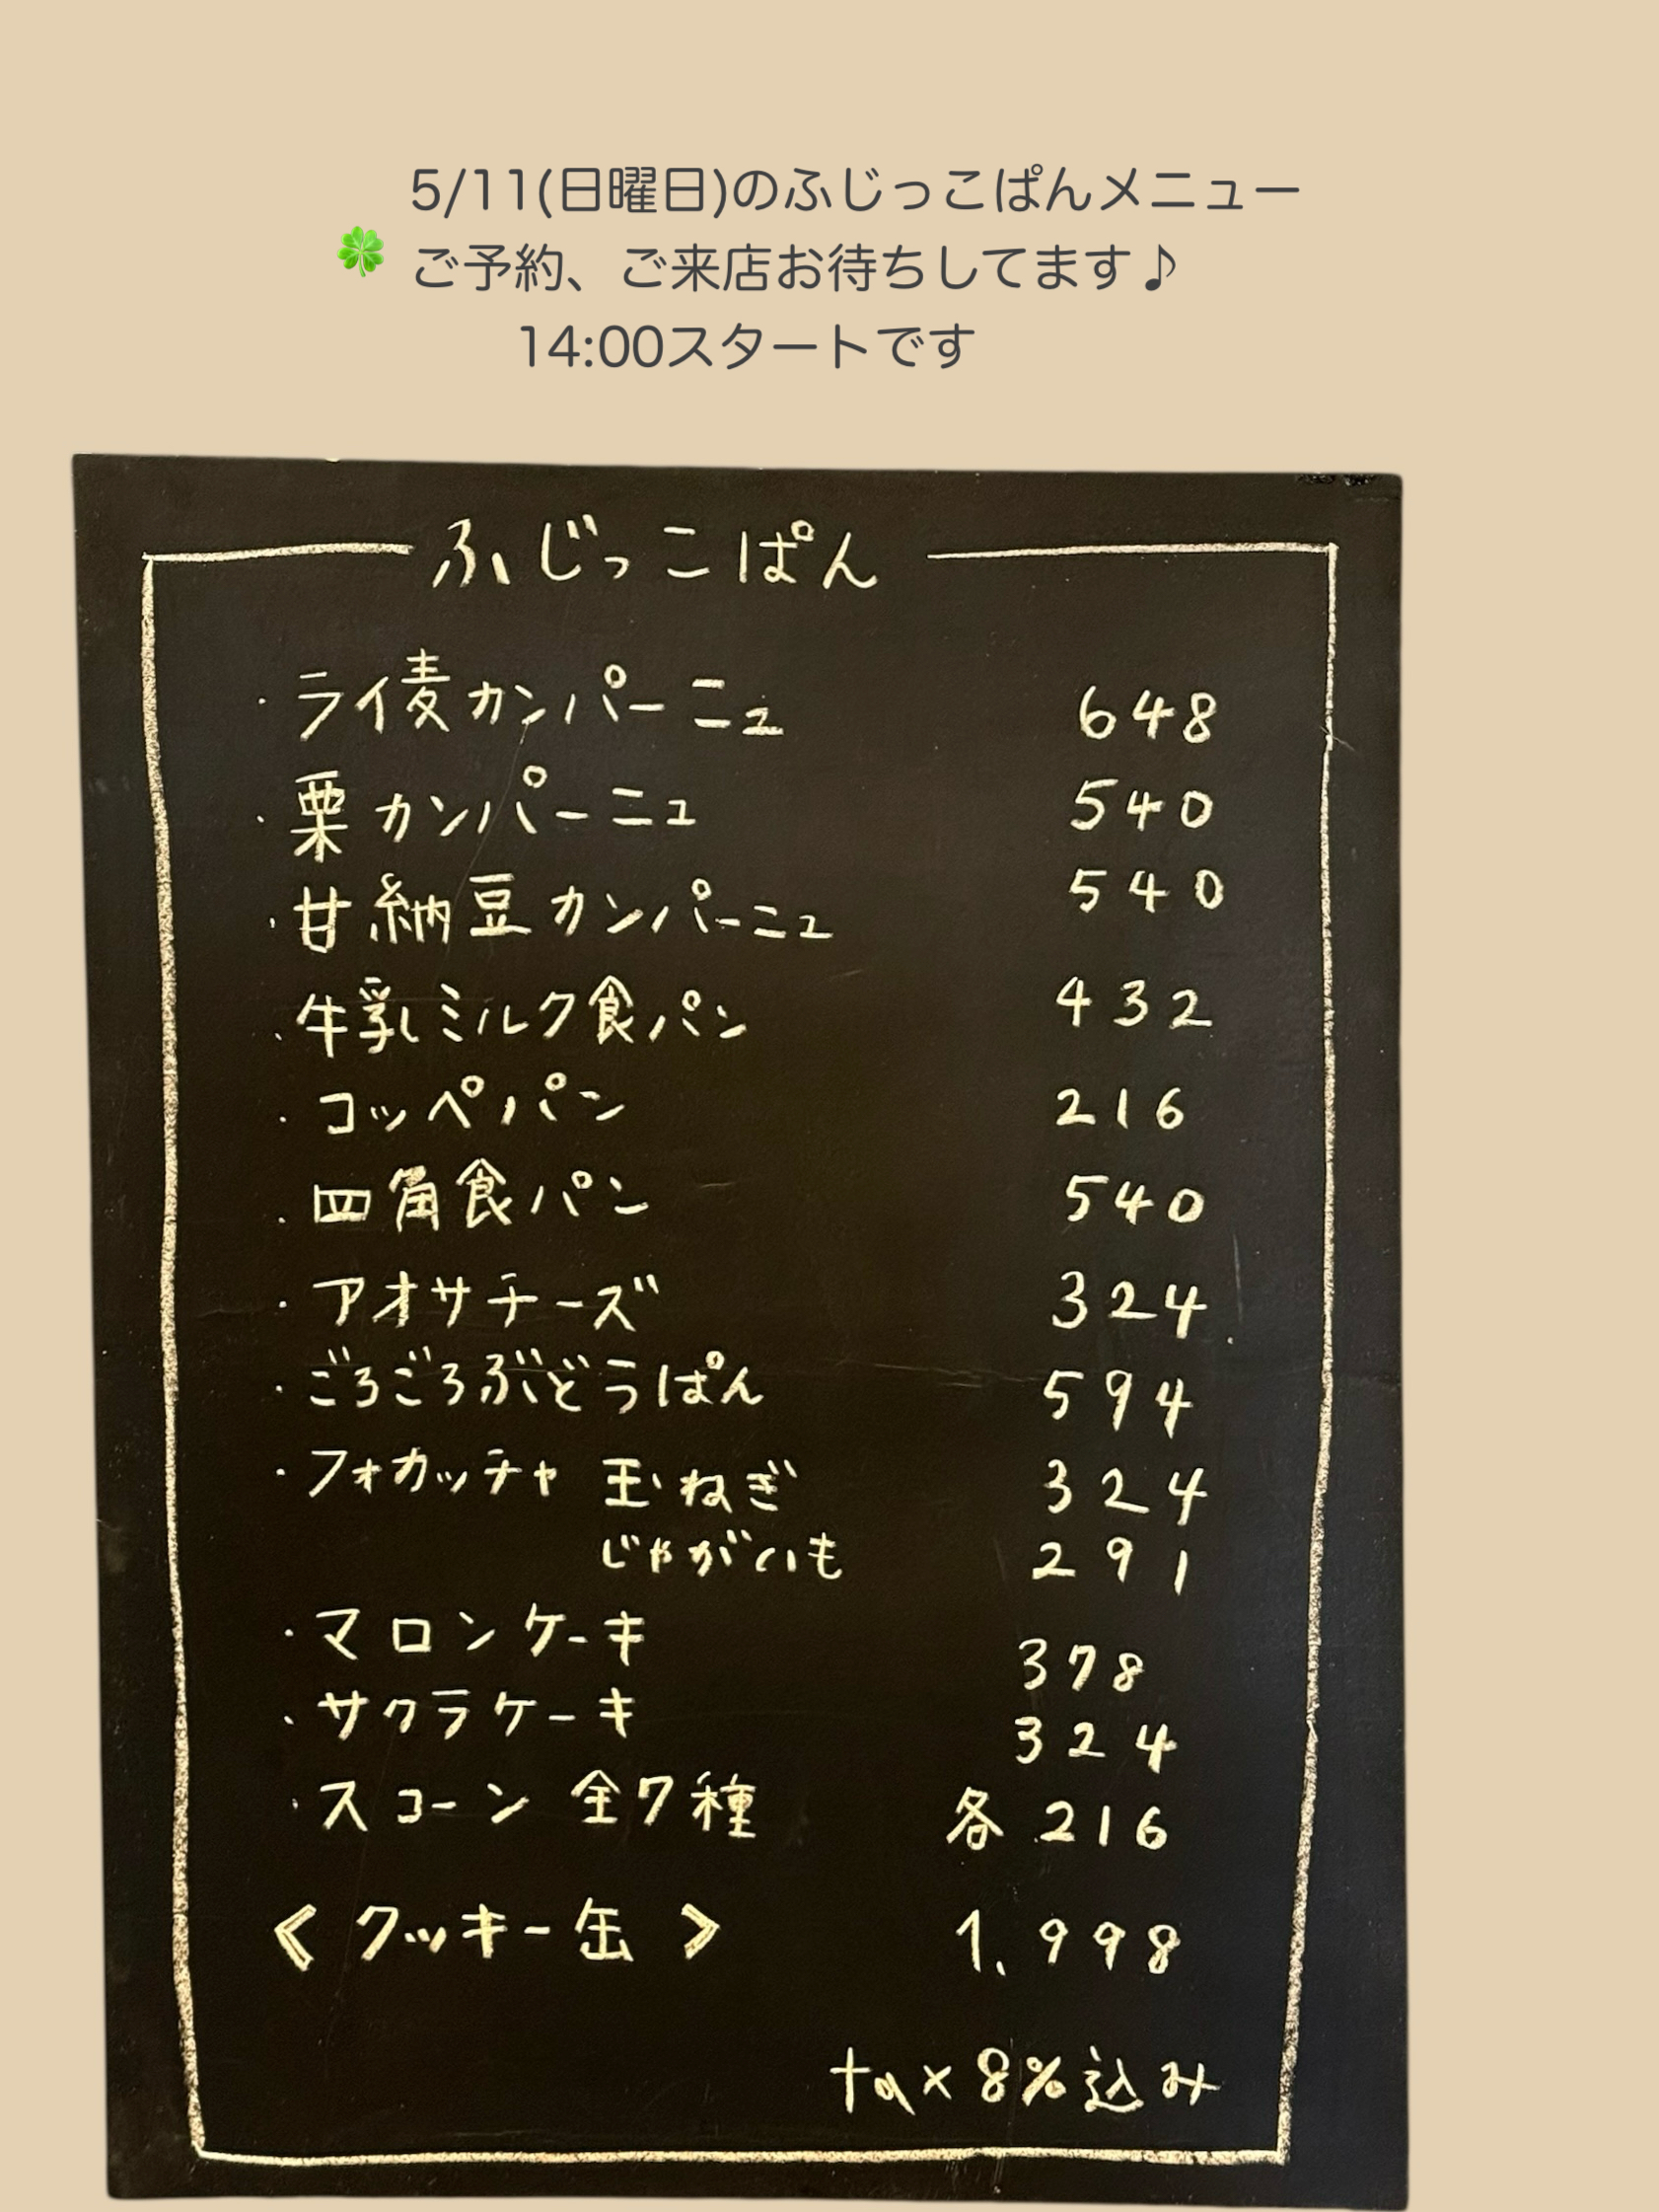 5/11(日曜日)のふじっこぱんメニュー
🍀 ご予約、ご来店お待ちしてます♪
14:00スタートです
ふじっこぱん
・ライ麦カンパーニュ 648
・栗カンパーニュ 540
・甘納豆カンパーニュ 540
・牛乳ミルク食パン 432
・コッペパン 216
・四角食パン 540
・アオサチーズ 324
・ごろごろぶどうぱん 594
・フォカッチャ 玉ねぎ 324
じゃがいも 291
・マロンケーキ 378
・サクラケーキ 324
・スコーン 全7種 各 216
《クッキー缶》 1,998
tax 8%込み